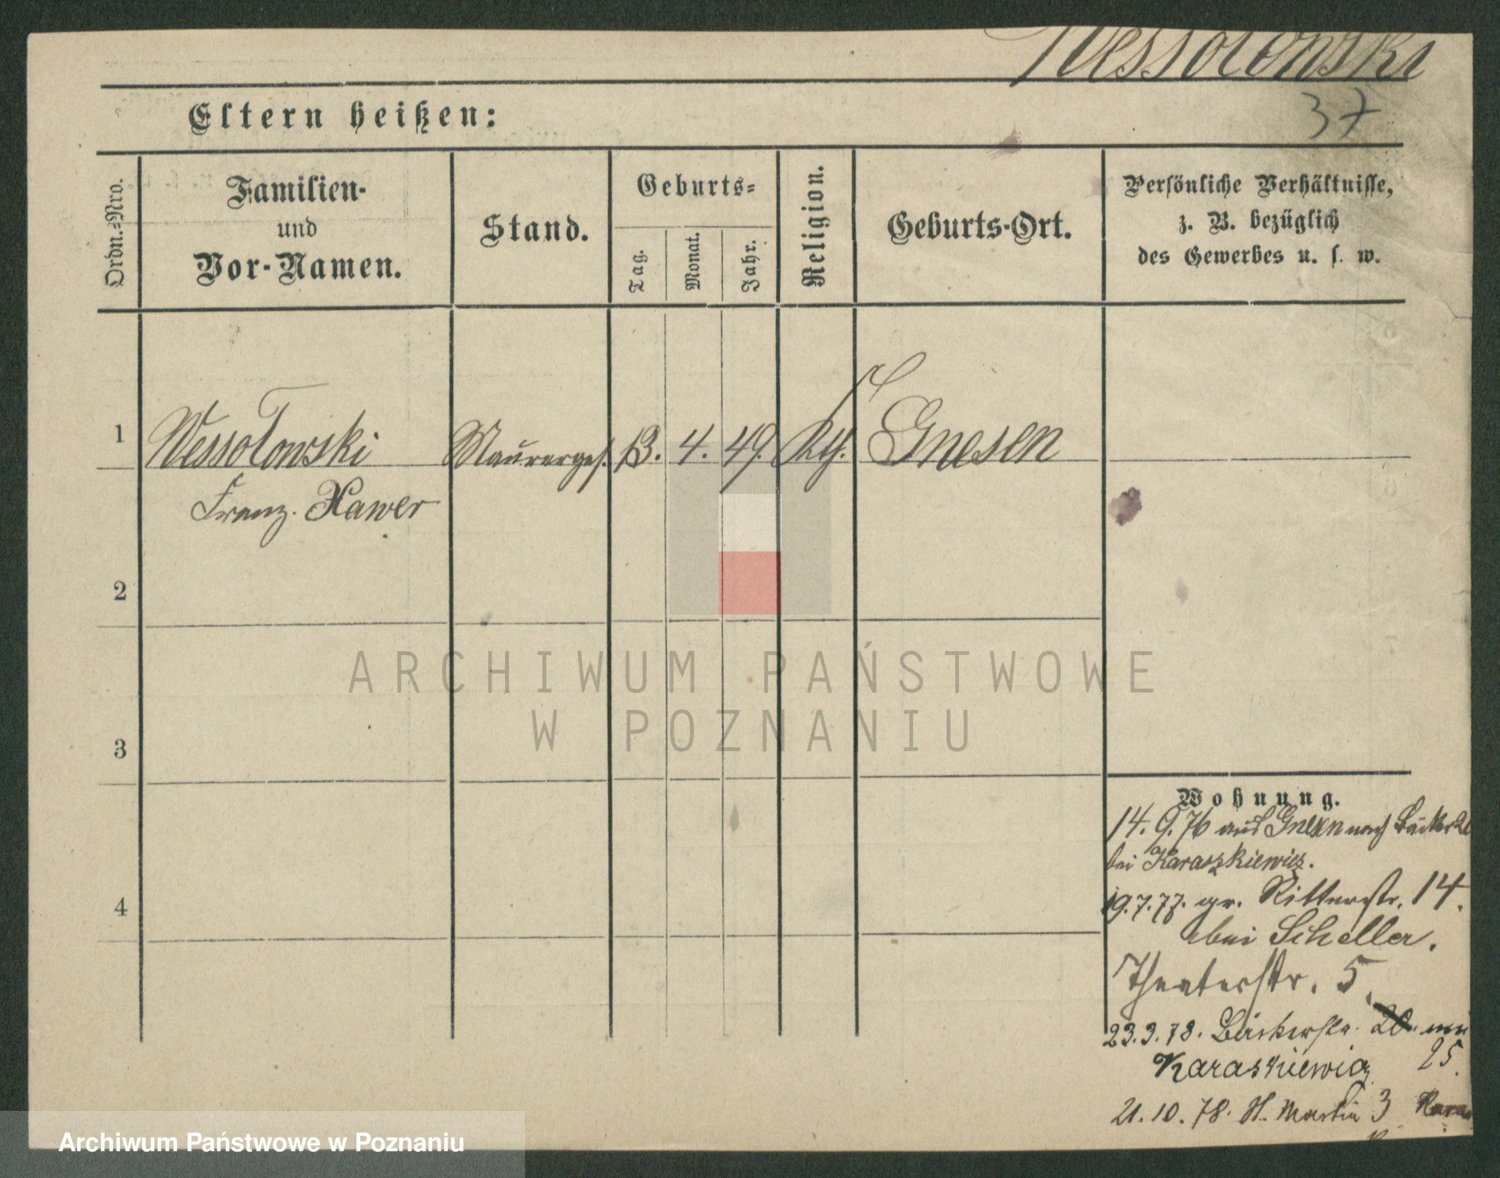 Wessolowski
37
Eltern heißen:
Ordn.-Nro.
Familien-
und
Vor-Namen.
Stand.
Geburts-
Tag.
Monat.
Jahr.
Religion.
Geburts-Ort.
Persönliche Verhältnisse,
z. B. bezüglich
des Gewerbes u. s. w.
1 Wessołowski Maurerges. 13. 4. 49. Kth. Gnesen
Franz. Xawer
2
ARCHIWUM PAŃSTWOWE
W POZNANIU
3
Wohnung.
14. 9. 76 aus Gnesen nach
bei Karaszkiewicz.
19. 7. 77. gr. Ritterstr. 14.
bei Scheller.
4
Theaterstr. 5.
23. 3. 78. Bäckerstr. 20
Karaskiewicz 25.
21. 10. 78. St. Martin 3
Archiwum Państwowe w Poznaniu